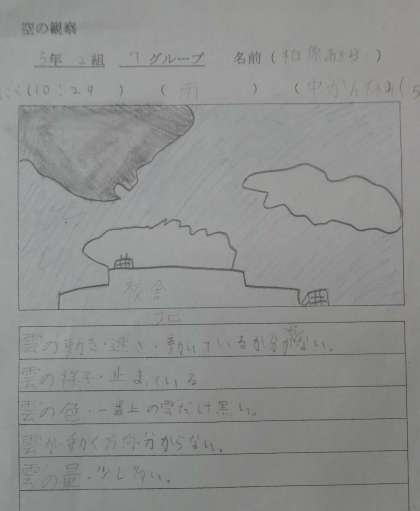 空の観察
5年 2組 7グループ 名前(
(10:24 ) ( 雨 ) (
校舎
北
雲の動き・速さ・動いているか分からない。
雲の様子・止まっている
雲の色・一番上の雲だけ黒い。
雲が動く方向分からない。
雲の量・少し多い。